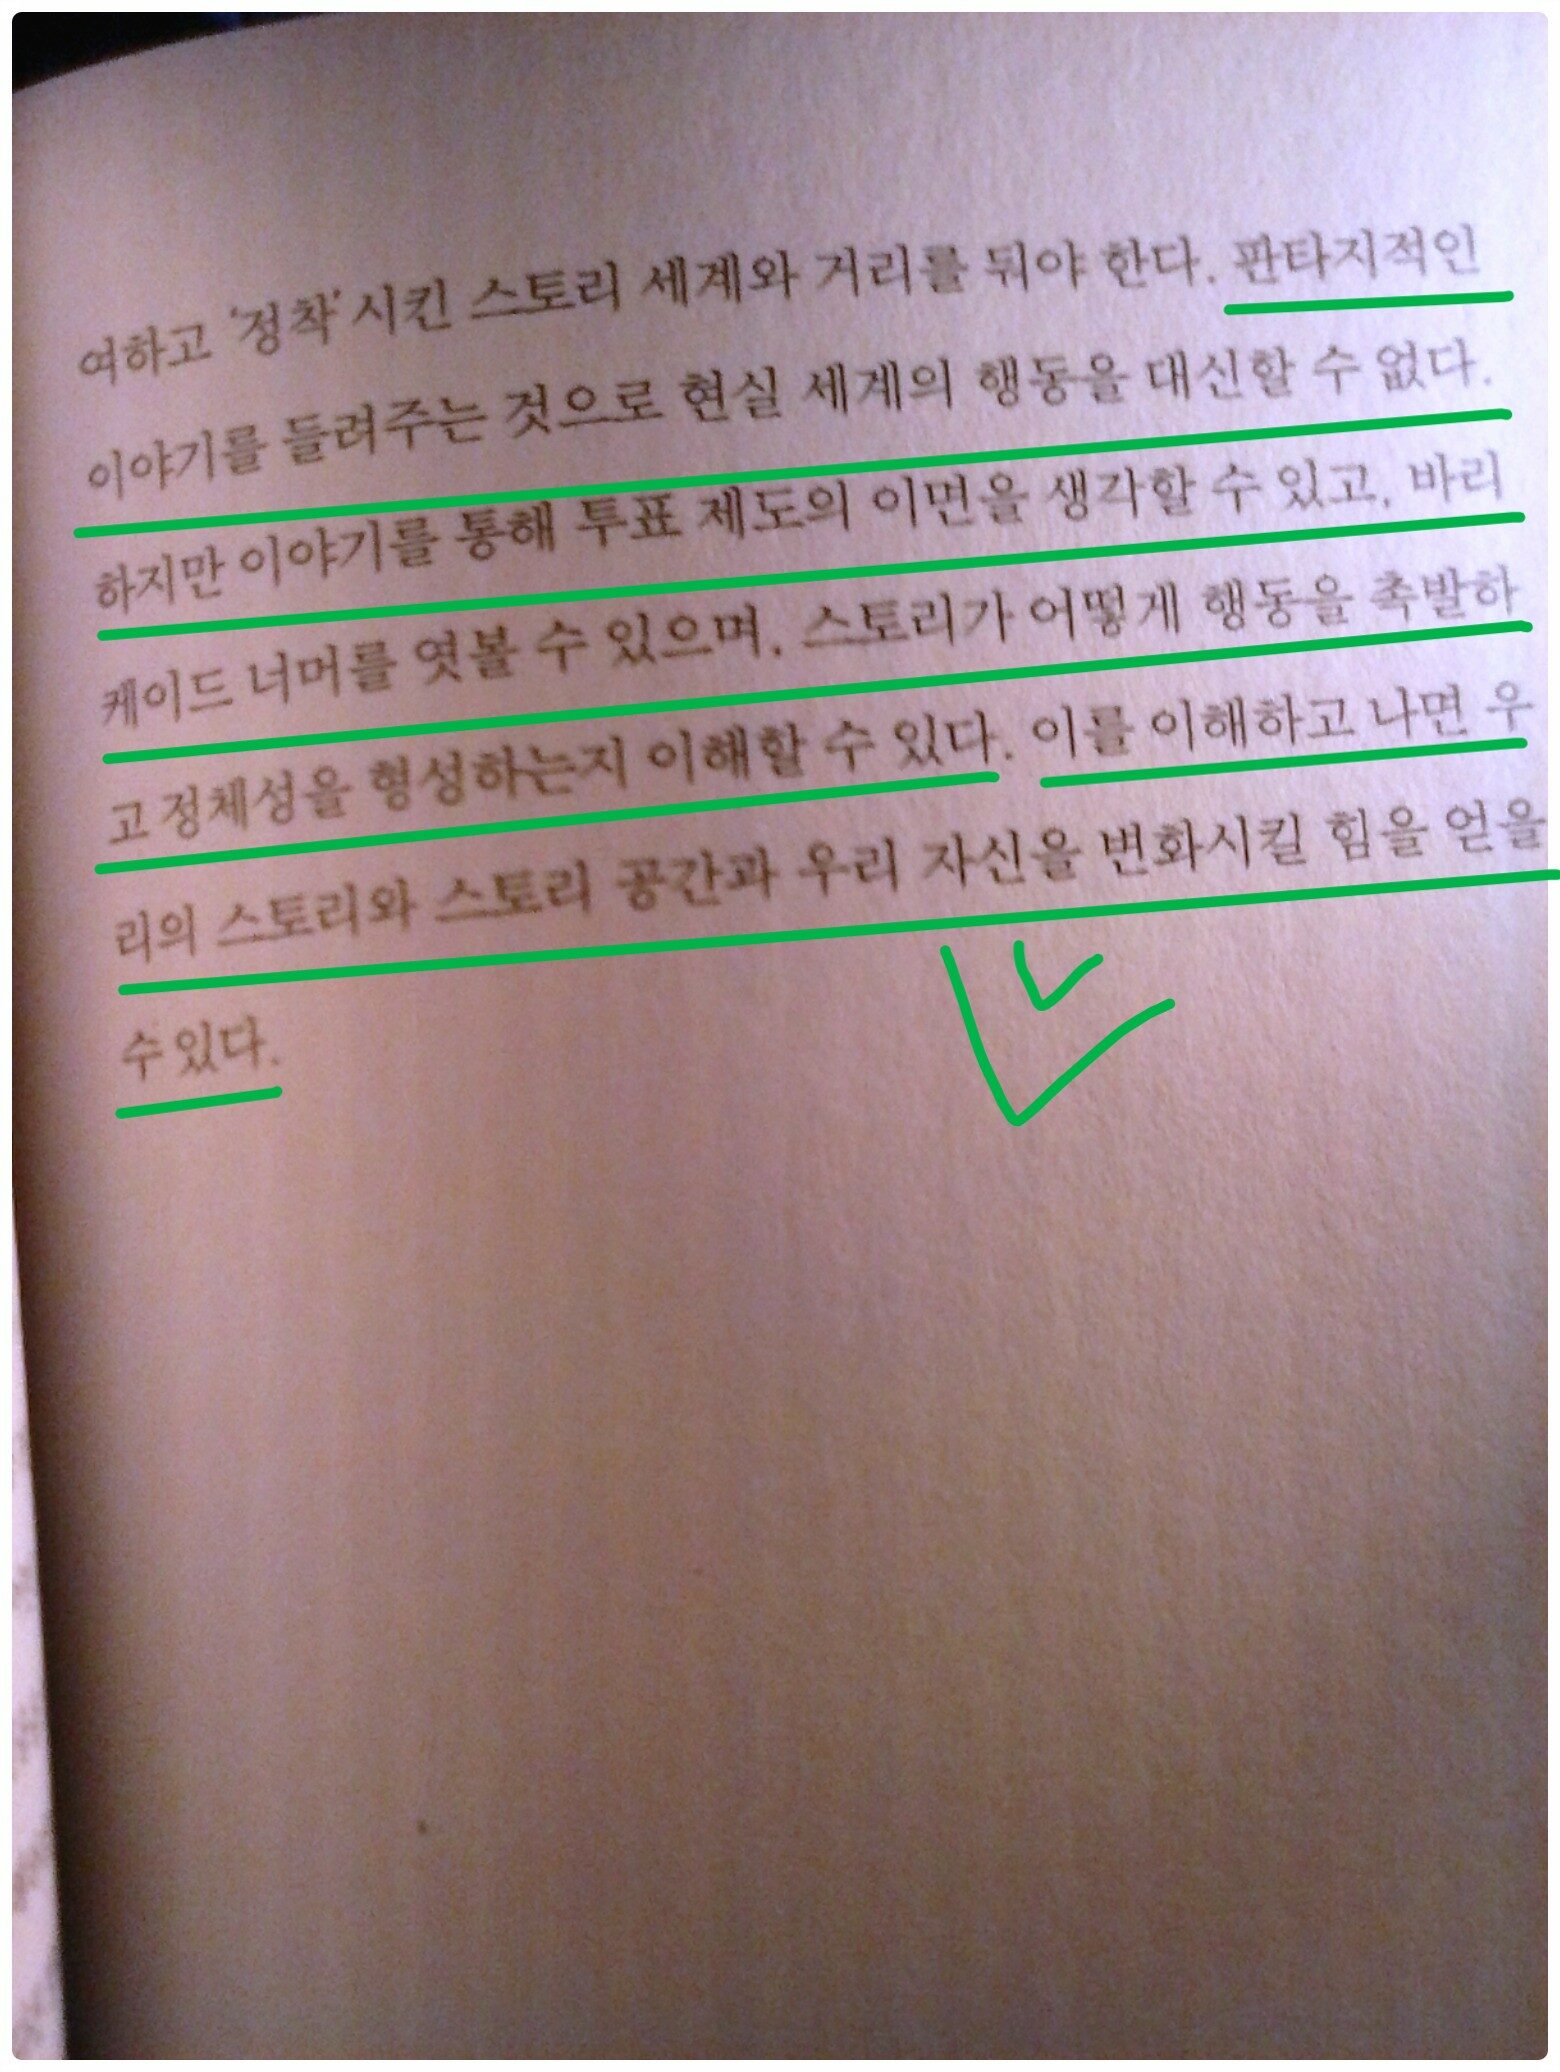 여하고 '정착'시킨 스토리 세계와 거리를 둬야 한다. 판타지적인
이야기를 들려주는 것으로 현실 세계의 행동을 대신할 수 없다.
하지만 이야기를 통해 투표 제도의 이면을 생각할 수 있고, 바리
케이드 너머를 엿볼 수 있으며, 스토리가 어떻게 행동을 촉발하
고 정체성을 형성하는지 이해할 수 있다. 이를 이해하고 나면 우
리의 스토리와 스토리 공간과 우리 자신을 변화시킬 힘을 얻을
수 있다.